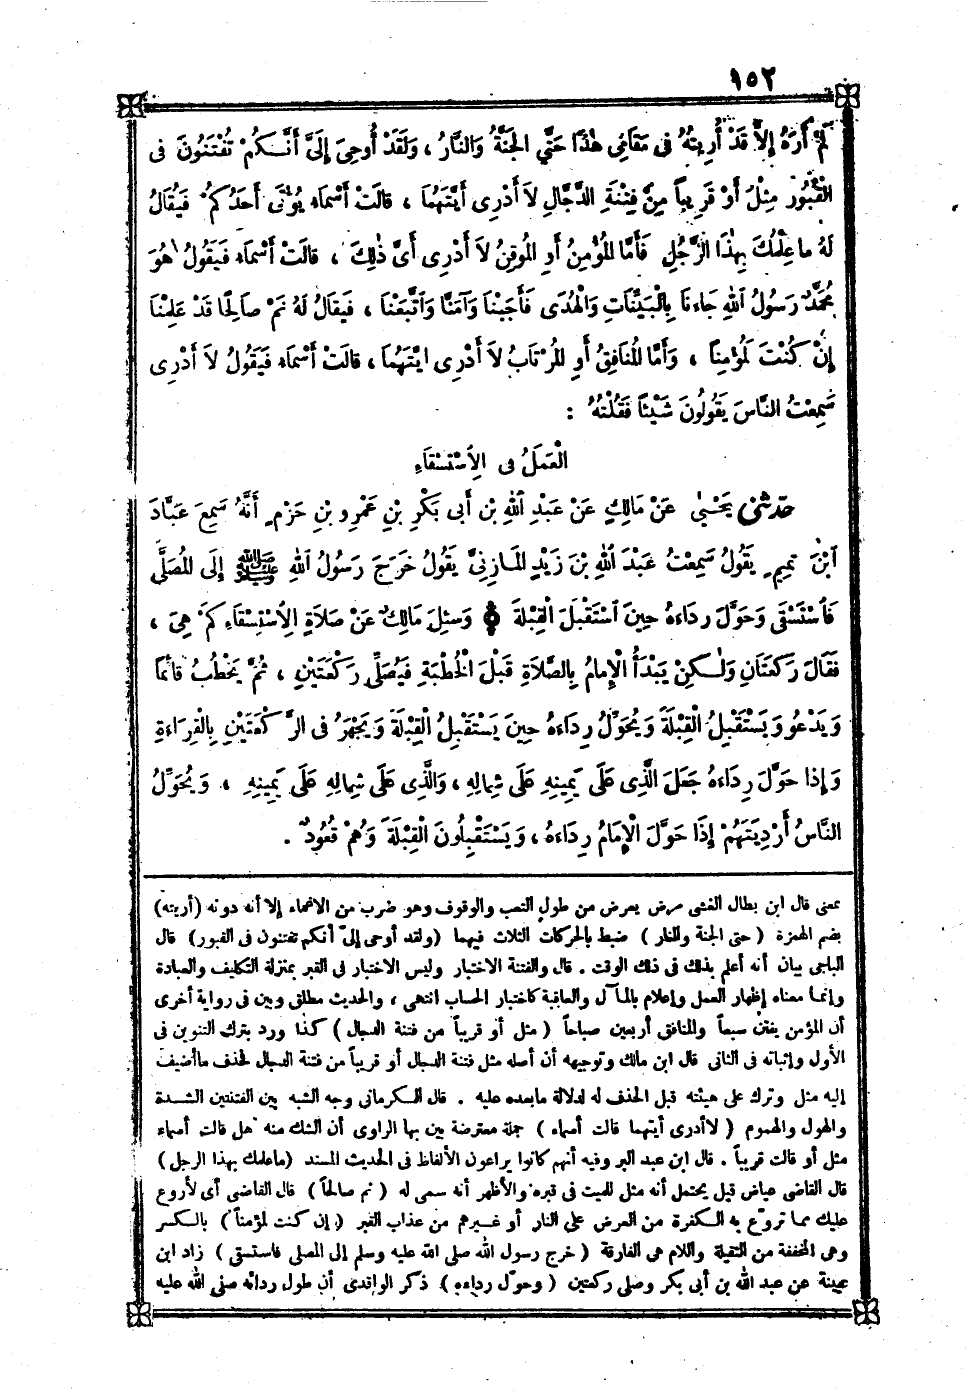 ١٥٢
لَمْ أَرَهُ إِلاَّ قَدْ أُرِيتُهُ فِى مَقَامِى هٰذَا حَتَّى الْجَنَّةُ وَالنَّارُ ، وَلَقَدْ أُوحِىَ إِلَىَّ أَنَّكُمْ تُفْتَنُونَ فِى
الْقُبُورِ مِثْلَ أَوْ قَرِيباً مِنْ فِتْنَةِ الدَّجَّالِ لاَ أَدْرِى أَيَّتَهُمَا ، قَالَتْ أَسْمَاءِ يُؤْتَى أَحَدُكُمْ فَيُقَالُ
لَهُ مَا عِلْمُكَ بِهٰذَا الرَّجُلِ فَأَمَّا الْمُؤْمِنُ أَوِ الْمُوقِنُ لاَ أَدْرِى أَىَّ ذٰلِكَ ، قَالَتْ أَسْمَاء فَيَقُولُ هُوَ
مُحَمَّدٌ رَسُولُ اللهِ جَاءَنَا بِالْبَيِّنَاتِ وَالْهُدَى فَأَجَبْنَا وَآمَنَّا وَاتَّبَعْنَا ، فَيُقَالُ لَهُ نَمْ صَالِحًا قَدْ عَلِمْنَا
إِنْ كُنْتَ لَمُؤْمِنًا ، وَأَمَّا الْمُنَافِقُ أَوِ الْمُرْتَابُ لاَ أَدْرِى ايَّتَهُمَا ، قَالَتْ أَسْمَاء فَيَقُولُ لاَ أَدْرِى
سَمِعْتُ النَّاسَ يَقُولُونَ شَيْئًا فَقُلْتُهُ :
الْعَمَلُ فِى الِاسْتِسْقَاءِ
حَدَّثَنِى يَحْيَىٰ عَنْ مَالِكٍ عَنْ عَبْدِ اللهِ بْنِ أَبِى بَكْرِ بْنِ عَمْرِو بْنِ حَزْمٍ أَنَّهُ سَمِعَ عَبَّادَ
ابْنَ تَمِيمٍ يَقُولُ سَمِعْتُ عَبْدَ اللهِ بْنَ زَيْدٍ الْمَازِنِىَّ يَقُولُ خَرَجَ رَسُولُ اللهِ ﷺ إِلَى الْمُصَلَّى
فَاسْتَسْقَى وَحَوَّلَ رِدَاءَهُ حِينَ اسْتَقْبَلَ الْقِبْلَةَ وَسُئِلَ مَالِكٌ عَنْ صَلاَةِ الِاسْتِسْقَاءِ كَمْ هِىَ ،
فَقَالَ رَكْعَتَانِ وَلٰكِنْ يَبْدَأُ الْإِمَامُ بِالصَّلاَةِ قَبْلَ الْخُطْبَةِ فَيُصَلِّى رَكْعَتَيْنِ ، ثُمَّ يَخْطُبُ قَائِمًا
وَيَدْعُو وَيَسْتَقْبِلُ الْقِبْلَةَ وَيُحَوِّلُ رِدَاءَهُ حِينَ يَسْتَقْبِلُ الْقِبْلَةَ وَيَجْهَرُ فِى الرَّكْعَتَيْنِ بِالْقِرَاءَةِ
وَإِذَا حَوَّلَ رِدَاءَهُ جَعَلَ الَّذِى عَلَى يَمِينِهِ عَلَى شِمَالِهِ ، وَالَّذِى عَلَى شِمَالِهِ عَلَى يَمِينِهِ ، وَيُحَوِّلُ
النَّاسُ أَرْدِيَتَهُمْ إِذَا حَوَّلَ الْإِمَامُ رِدَاءَهُ ، وَيَسْتَقْبِلُونَ الْقِبْلَةَ وَهُمْ قُعُودٌ .
بمعنى قال ابن بطال الغشى مرض يعرض من طول التعب والوقوف وهو ضرب من الاغماء إلا أنه دونه (أريته)
بضم الهمزة ( حتى الجنة والنار ) ضبط بالحركات الثلاث فيهما (ولقد أوحى إلىّ أنكم تفتنون فى القبور) قال
الباجى بيان أنه أعلم بذلك فى ذلك الوقت . قال والفتنة الاختبار وليس الاختبار فى القبر بمنزلة التكليف والعبادة
وإنما معناه إظهار العمل وإعلام بالمآل والعاقبة كاختبار الحساب انتهى ، والحديث مطلق وبين فى رواية أخرى
أن المؤمن يفتن سبعاً والمنافق أربعين صباحاً ( مثل أو قريباً من فتنة الدجال ) كذا ورد بترك التنوين فى
الأول وإثباته فى الثانى قال ابن مالك وتوجيهه أن أصله مثل فتنة الدجال أو قريباً من فتنة الدجال فحذف ماأضيف
إليه مثل وترك على هيئته قبل الحذف له لدلالة مابعده عليه . قال الكرمانى وجه الشبه بين الفتنتين الشدة
والهول والهموم ( لاأدرى أيتهما قالت أسماء ) جملة معترضة بين بها الراوى أن الشك منه هل قالت أسماء
مثل أو قالت قريباً . قال ابن عبد البر وفيه أنهم كانوا يراعون الألفاظ فى الحديث المسند (ماعلمك بهذا الرجل)
قال القاضى عياض قيل يحتمل أنه مثل للميت فى قبره والأظهر أنه سمى له ( نم صالحاً ) قال القاضى أى لأروع
عليك مما تروّع به الكفرة من العرض على النار أو غيرهم من عذاب القبر ( إن كنت لمؤمناً ) بالكسر
وهى المخففة من الثقيلة واللام هى الفارقة ( خرج رسول الله صلى الله عليه وسلم إلى المصلى فاستسقى ) زاد ابن
عيينة عن عبد الله بن أبى بكر وصلى ركعتين ( وحوّل رداءه ) ذكر الواقدى أن طول ردائه صلى الله عليه